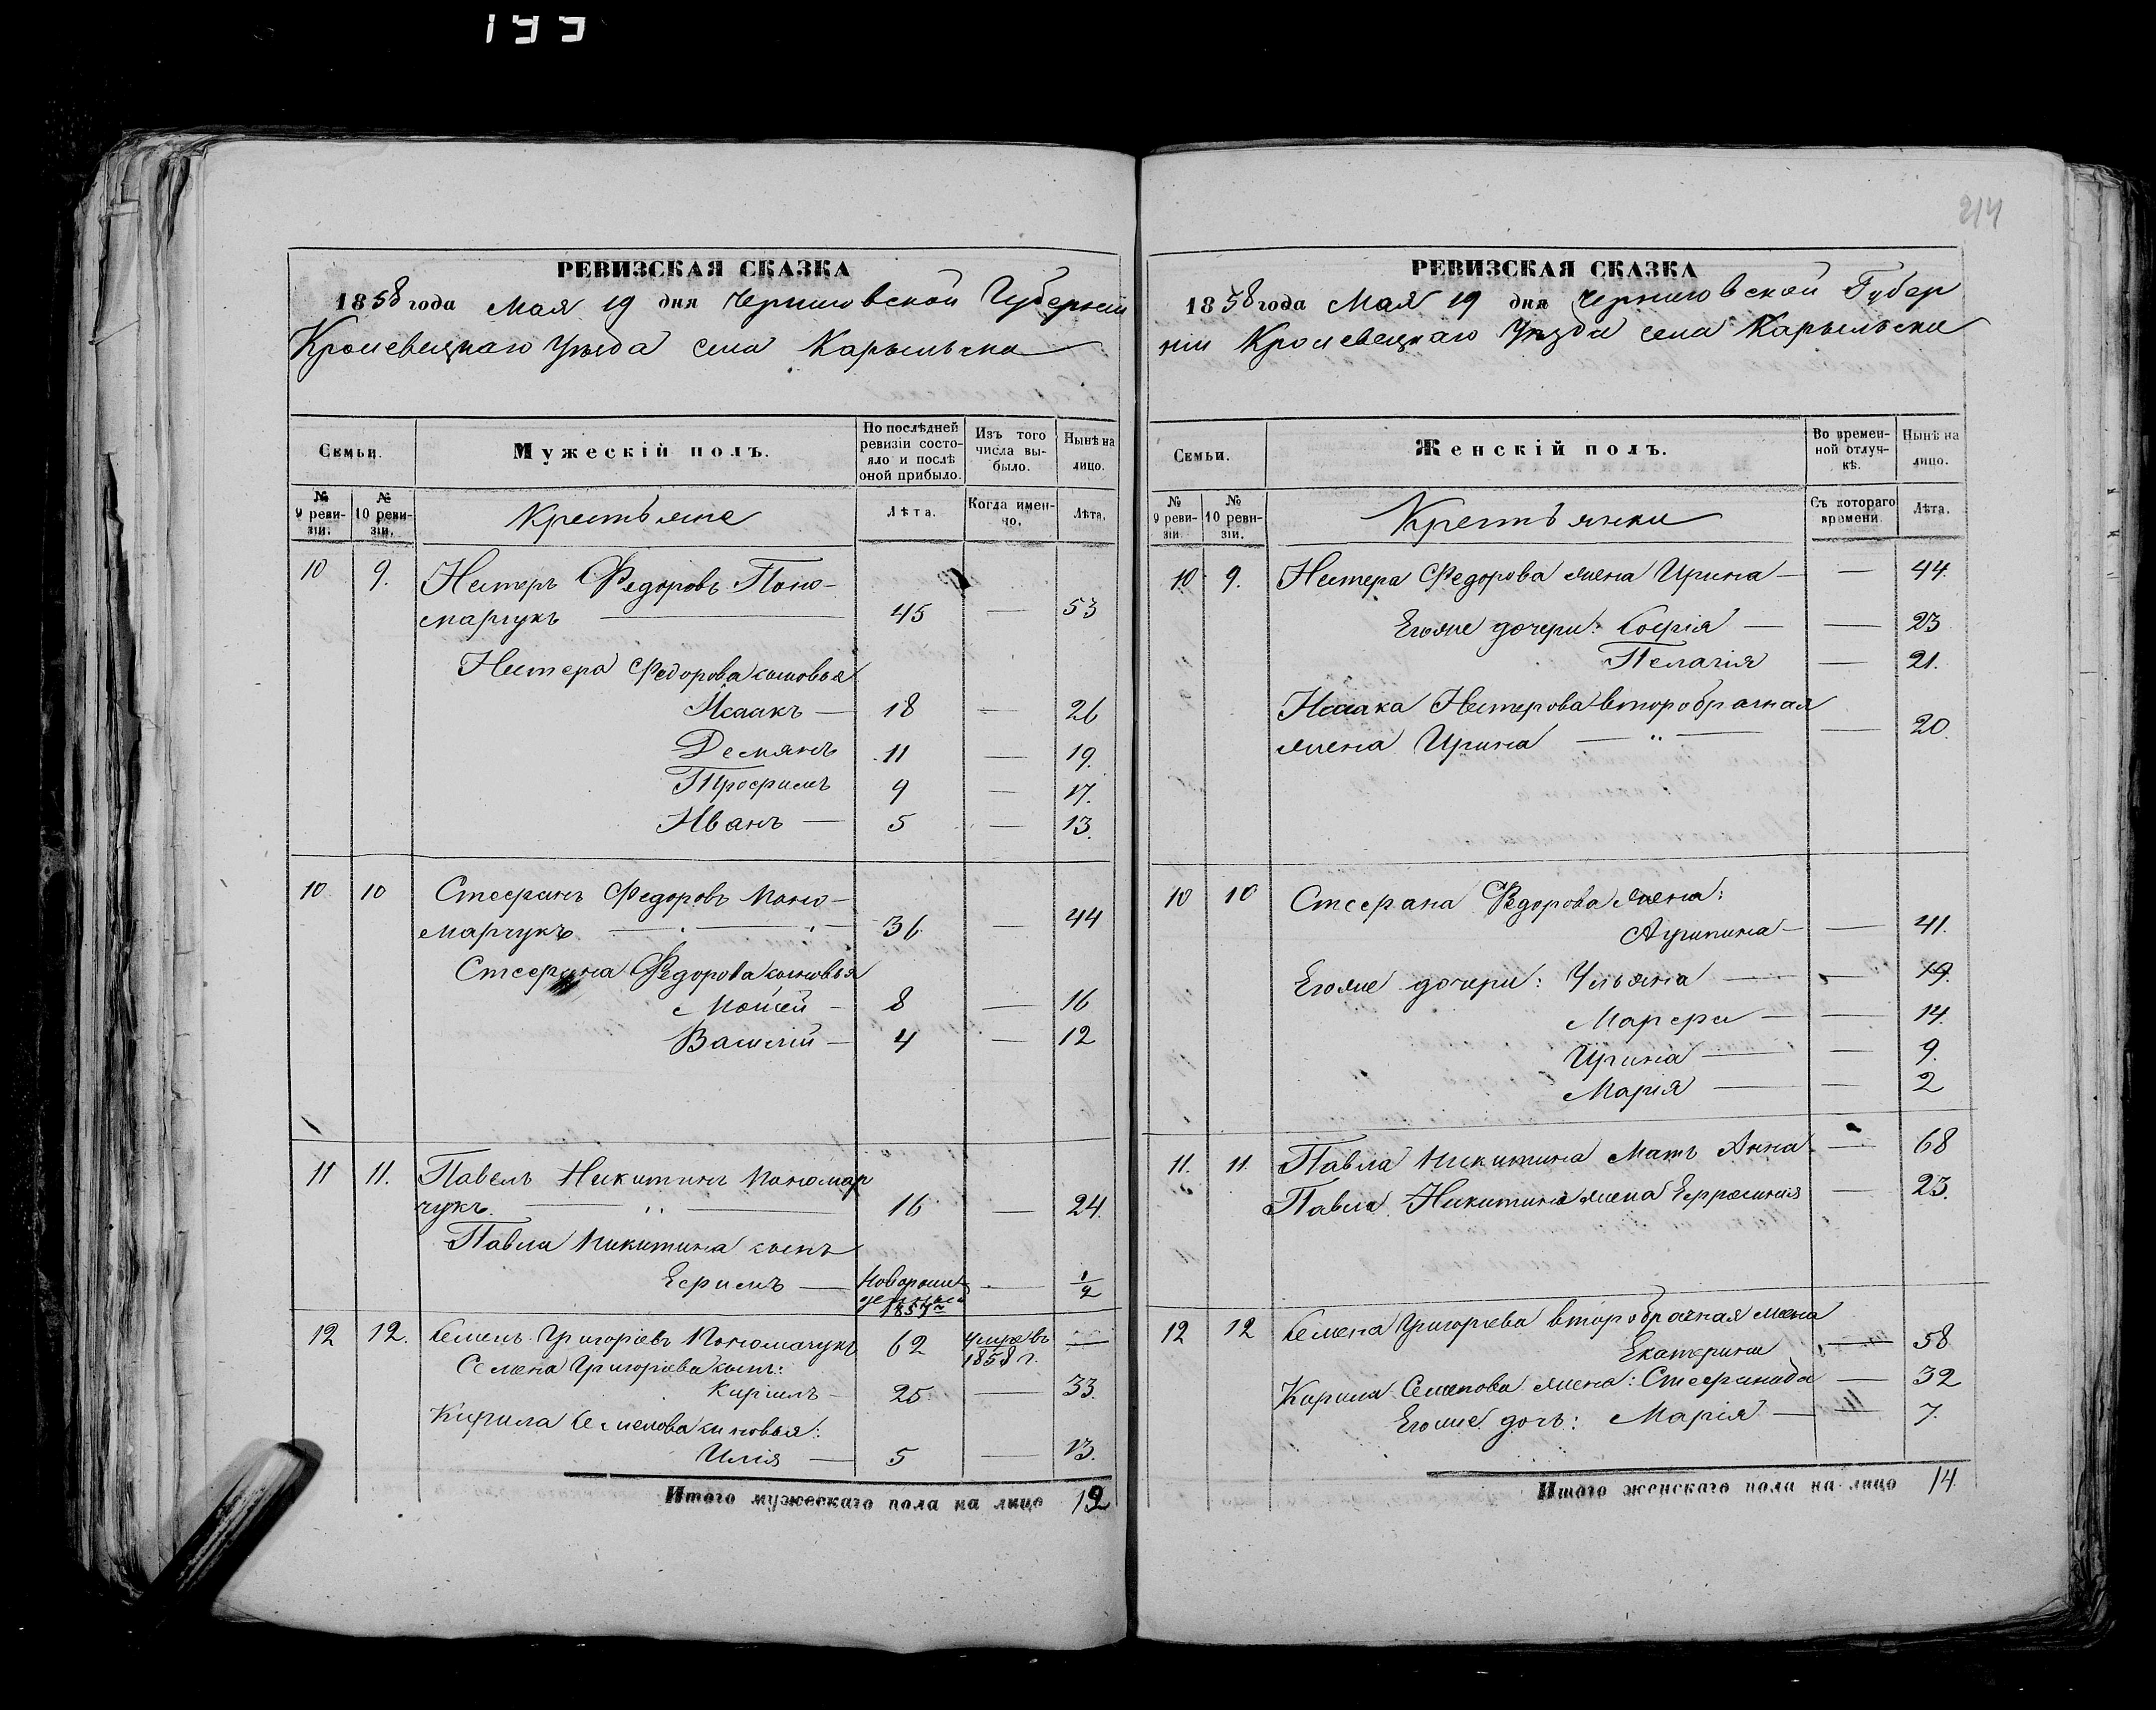 199
214
РЕВИЗСКАЯ СКАЗКА
1858 года Мая 19 дня Черниговской Губерніи
Кролевецкаго Уѣзда села Карыльска
Семьи.
Мужескій полъ.
По послѣдней ревизіи состояло и послѣ оной прибыло.
Изъ того числа выбыло.
Нынѣ на лицо.
№ 9 ревизіи.
№ 10 ревизіи.
Крестьяне
Лѣта.
Когда именно.
Лѣта.
10 9. Нестеръ Федоровъ Поно-
марчукъ — 45 — 53
Нестера Федорова сыновья
Исаакъ — 18 — 26
Демянъ 11 — 19.
Трофимъ 9 — 17.
Иванъ — 5 — 13.
10 10 Стефанъ Федоровъ Поно-
марчукъ — 36 — 44
Стефана Федорова сыновья
Мойсей — 8 — 16
Василій — 4 — 12
11 11. Павелъ Никитинъ Пономар
чукъ. — 16 — 24.
Павла Никитина сынъ
Ефимъ — Новорожденный 1857 — 1/2
12 12. Семенъ Григоріевъ Пономарчукъ 62 Умре въ 1858 г. —
Семена Григоріева сынъ:
Кирилъ — 25 — 33.
Кирила Семенова сыновья:
Илія — 5 — 13.
Итого мужескаго пола на лицо 12
РЕВИЗСКАЯ СКАЗКА
1858 года Мая 19 дня Черниговской Губер
ніи Кролевецкаго Уѣзда села Карыльска
Семьи.
Женскій полъ.
Во временной отлучкѣ.
Нынѣ на лицо.
№ 9 ревизіи.
№ 10 ревизіи.
Крестьянки
Съ котораго времени
Лѣта.
10. 9. Нестера Федорова жена Ирина — — 44.
Егоже дочери: Софія — — 23
Пелагія — 21.
Исаака Нестерова второбрачная
жена Ирина — — 20.
10 10 Стефана Федорова жена:
Агрипина — — 41.
Егоже дочери: Ульяна — — 19.
Марфа — — 14.
Ирина — — 9.
Марія — — 2
11. 11. Павла Никитина Мать Анна — 68
Павла Никитина жена Ефросинія — 23.
12 12 Семена Григорьева второбрачная жена
Екатерина — 58
Кирила Семенова жена: Стефанида — 32
Егоже дочь: Марія — — 7.
Итого женскаго пола на лицо 14.